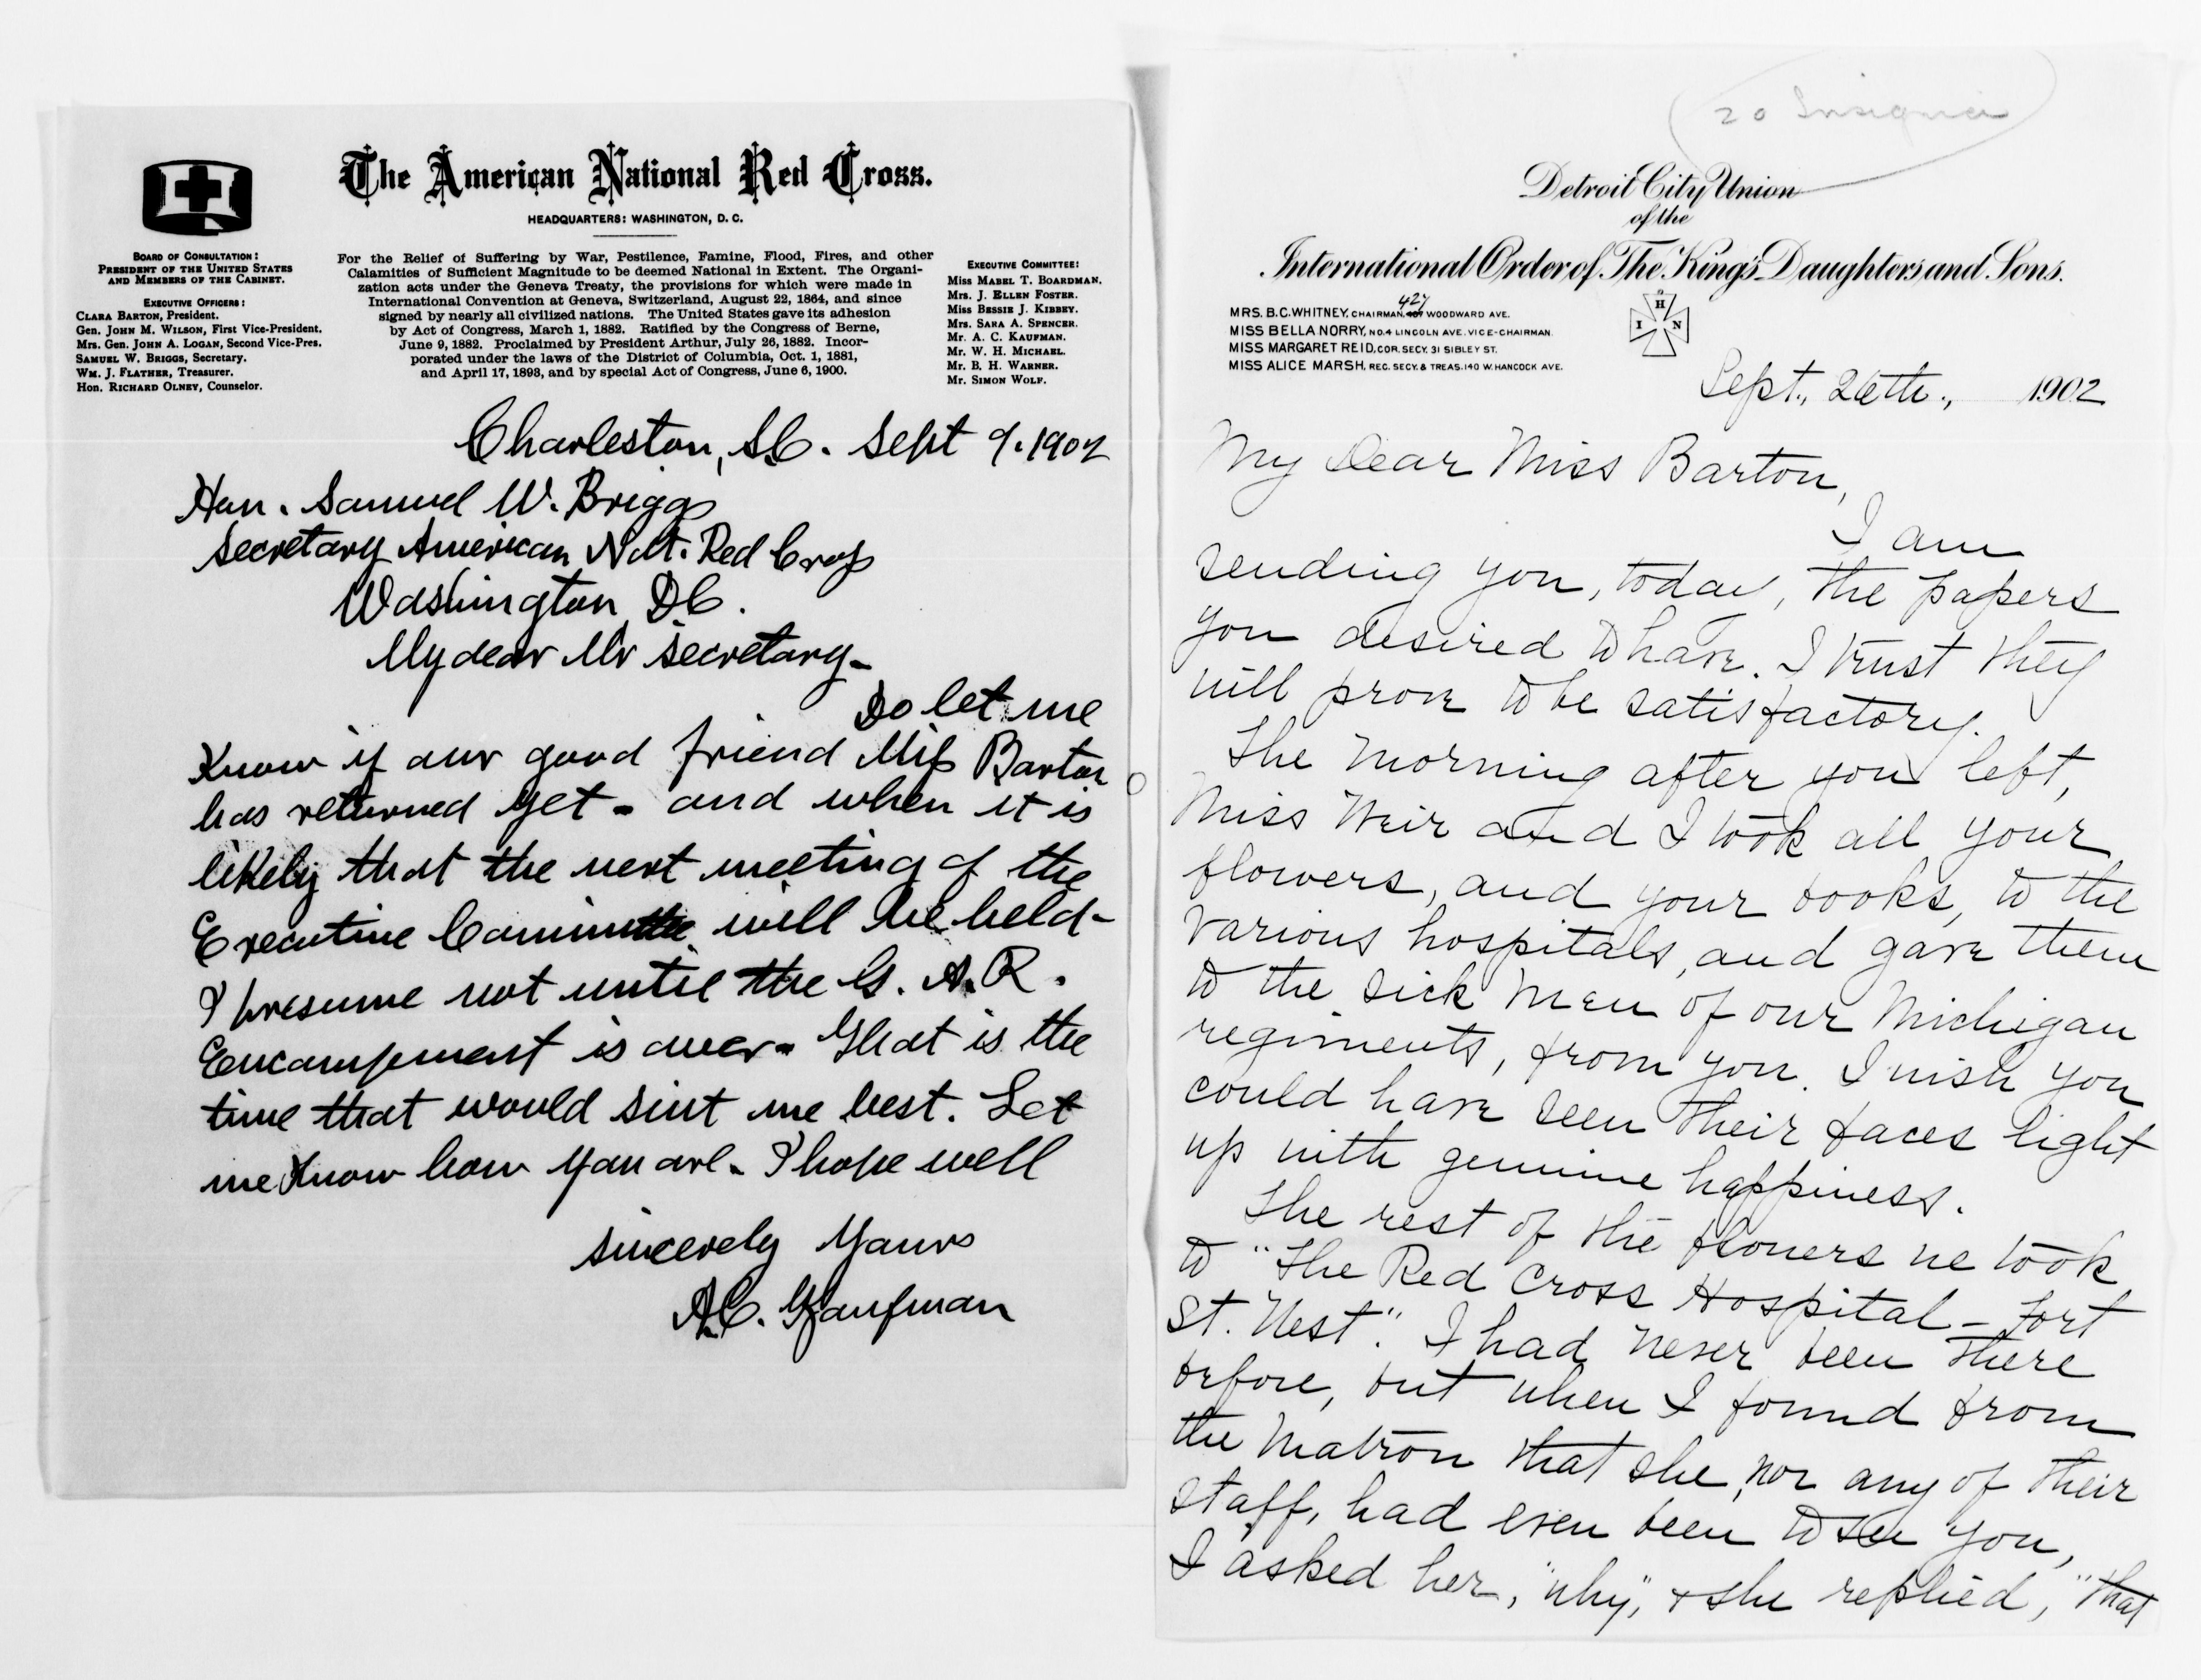 The American National Red Cross.
HEADQUARTERS: WASHINGTON, D. C.
BOARD OF CONSULTATION:
PRESIDENT OF THE UNITED STATES
AND MEMBERS OF THE CABINET.
EXECUTIVE OFFICERS:
CLARA BARTON, President.
Gen. JOHN M. WILSON, First Vice-President.
Mrs. Gen. JOHN A. LOGAN, Second Vice-Pres.
SAMUEL W. BRIGGS, Secretary.
WM. J. FLATHER, Treasurer.
Hon. RICHARD OLNEY, Counselor.
For the Relief of Suffering by War, Pestilence, Famine, Flood, Fires, and other
Calamities of Sufficient Magnitude to be deemed National in Extent. The Organi-
zation acts under the Geneva Treaty, the provisions for which were made in
International Convention at Geneva, Switzerland, August 22, 1864, and since
signed by nearly all civilized nations. The United States gave its adhesion
by Act of Congress, March 1, 1882. Ratified by the Congress of Berne,
June 9, 1882. Proclaimed by President Arthur, July 26, 1882. Incor-
porated under the laws of the District of Columbia, Oct. 1, 1881,
and April 17, 1893, and by special Act of Congress, June 6, 1900.
EXECUTIVE COMMITTEE:
Miss MABEL T. BOARDMAN.
Mrs. J. ELLEN FOSTER.
Miss BESSIE J. KIBBEY.
Mrs. SARA A. SPENCER.
Mr. A. C. KAUFMAN.
Mr. W. H. MICHAEL.
Mr. B. H. WARNER.
Mr. SIMON WOLF.
Charleston, S.C. Sept 9. 1902
Hon. Samuel W. Briggs
Secretary American Natl. Red Cross
Washington DC.
My dear Mr Secretary-
Do let me
Know if our good friend Miss Barton
has returned yet - and when it is
likely that the next meeting of the
Executive Committee will be held-
I presume not until the G. A. R.
Encampment is over - That is the
time that would suit me best. Let
me know how you are - I hope well
Sincerely Yours
A.C. Kaufman
20 Insignia
Detroit City Union
of the
International Order of The King's Daughters and Sons.
MRS. B.C. WHITNEY, CHAIRMAN, 427 WOODWARD AVE.
MISS BELLA NORRY, NO. 4 LINCOLN AVE. VICE-CHAIRMAN
MISS MARGARET REID, COR. SECY. 31 SIBLEY ST.
MISS ALICE MARSH, REC. SECY. & TREAS. 140 W. HANCOCK AVE.
I H N
Sept., 26th., 1902
My Dear Miss Barton,
I am
sending you, today, the papers
you desired to have. I trust they
will prove to be satisfactory.
The morning after you left,
Miss Weir and I took all your
flowers, and your books, to the
various hospitals, and gave them
to the sick men of our Michigan
regiments, from you. I wish you
could have seen their faces light
up with genuine happiness.
The rest of the flowers we took
to "The Red Cross Hospital - Fort
St. West." I had never been there
before, but when I found from
the Matron that she, nor any of their
staff, had even been to see you,
I asked her, "why", & she replied, "that